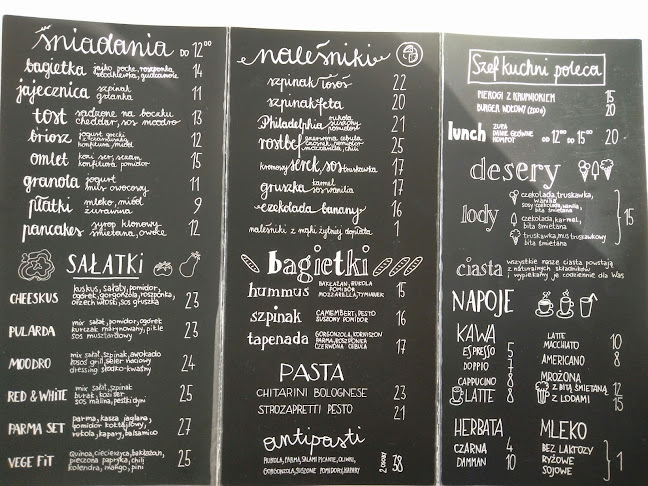 śniadania DO 12⁰⁰
bagietka 14
jajecznica szpinak 11
tost sadzone na boczku 13
cheddar, sos moodro
briosz jogurt grecki 12
konfitura, miód
omlet kozi ser, 15
konfitura, pomidor
granola jogurt 11
mus owocowy
płatki mleko, miód 9
żurawina
pancakes syrop klonowy 12
śmietana, owoce
SAŁATKI
CHEESKUS kuskus, sałaty, pomidor, 23
ogórek, gorgonzola, roszponka,
orzech włosti, sos gruszka
PULARDA mix sałat, pomidor, ogórek 23
kurczak marynowany, pikle
sos musztardowy
MOODRO mix sałat, szpinak, awokado 24
łosoś gril, seler naciowy
dressing słodko-kwaśny
RED & WHITE mix sałat, szpinak 25
burak, kozi ser
sos malina, pestki dyni
PARMA SET parma, kasza jaglana, 27
pomidor koktajlowy,
rukola, kapary, balsamico
VEGE FIT quinoa, ciecierzyca, bakłażan, 25
pieczona papryka, chili
kolendra, mango, pini
naleśniki
szpinak łosoś 22
szpinak feta 20
Philadelphia rukola 21
suszony
pomidor
rostbef czerwona cebula 25
kremowy serek, sos truskawka 17
gruszka karmel 17
sos wanilia
czekolada banany 16
naleśniki z mąki żytniej dopłata 1
bagietki
hummus BAKŁAŻAN, RUKOLA 15
POMIDOR
MOZZARELLA, TYMIANEK
szpinak CAMEMBERT, PESTO 16
SUSZONY POMIDOR
tapenada GORGONZOLA, KORNISZON 17
PARMA, ROSZPONKA
CZERWONA CEBULA
PASTA
CHITARINI BOLOGNESE 23
STROZAPRETTI PESTO 21
antipasti
RUKOLA, PARMA, SALAMI PICANTE, OLIWKI,
GORGONZOLA, SUSZONE POMIDORY, KAPARY 2 OSOBY 38
Szef kuchni poleca
PIEROGI Z KRUPNIOKIEM 15
BURGER WOŁOWY (200g) 20
lunch ZUPA
DANIE GŁÓWNE DO 12⁰⁰ DO 15⁰⁰ 20
KOMPOT
desery
lody czekolada, truskawka,
wanilia
sosy czekolada, wanilia,
bita śmietana
czekolada, karmel,
bita śmietana
truskawka, mus truskawkowy
bita śmietana
15
ciasta wszystkie nasze ciasta powstają
z naturalnych składników
i wypiekamy je codziennie dla Was
NAPOJE
KAWA
ESPRESSO 5
DOPPIO 7
CAPPUCINO 8
LATTE 8
LATTE
MACCHIATO 10
AMERICANO 8
MROŻONA
Z BITĄ ŚMIETANĄ 12
Z LODAMI 15
HERBATA
CZARNA 4
DAMMAN 10
MLEKO
BEZ LAKTOZY
RYŻOWE
SOJOWE
1